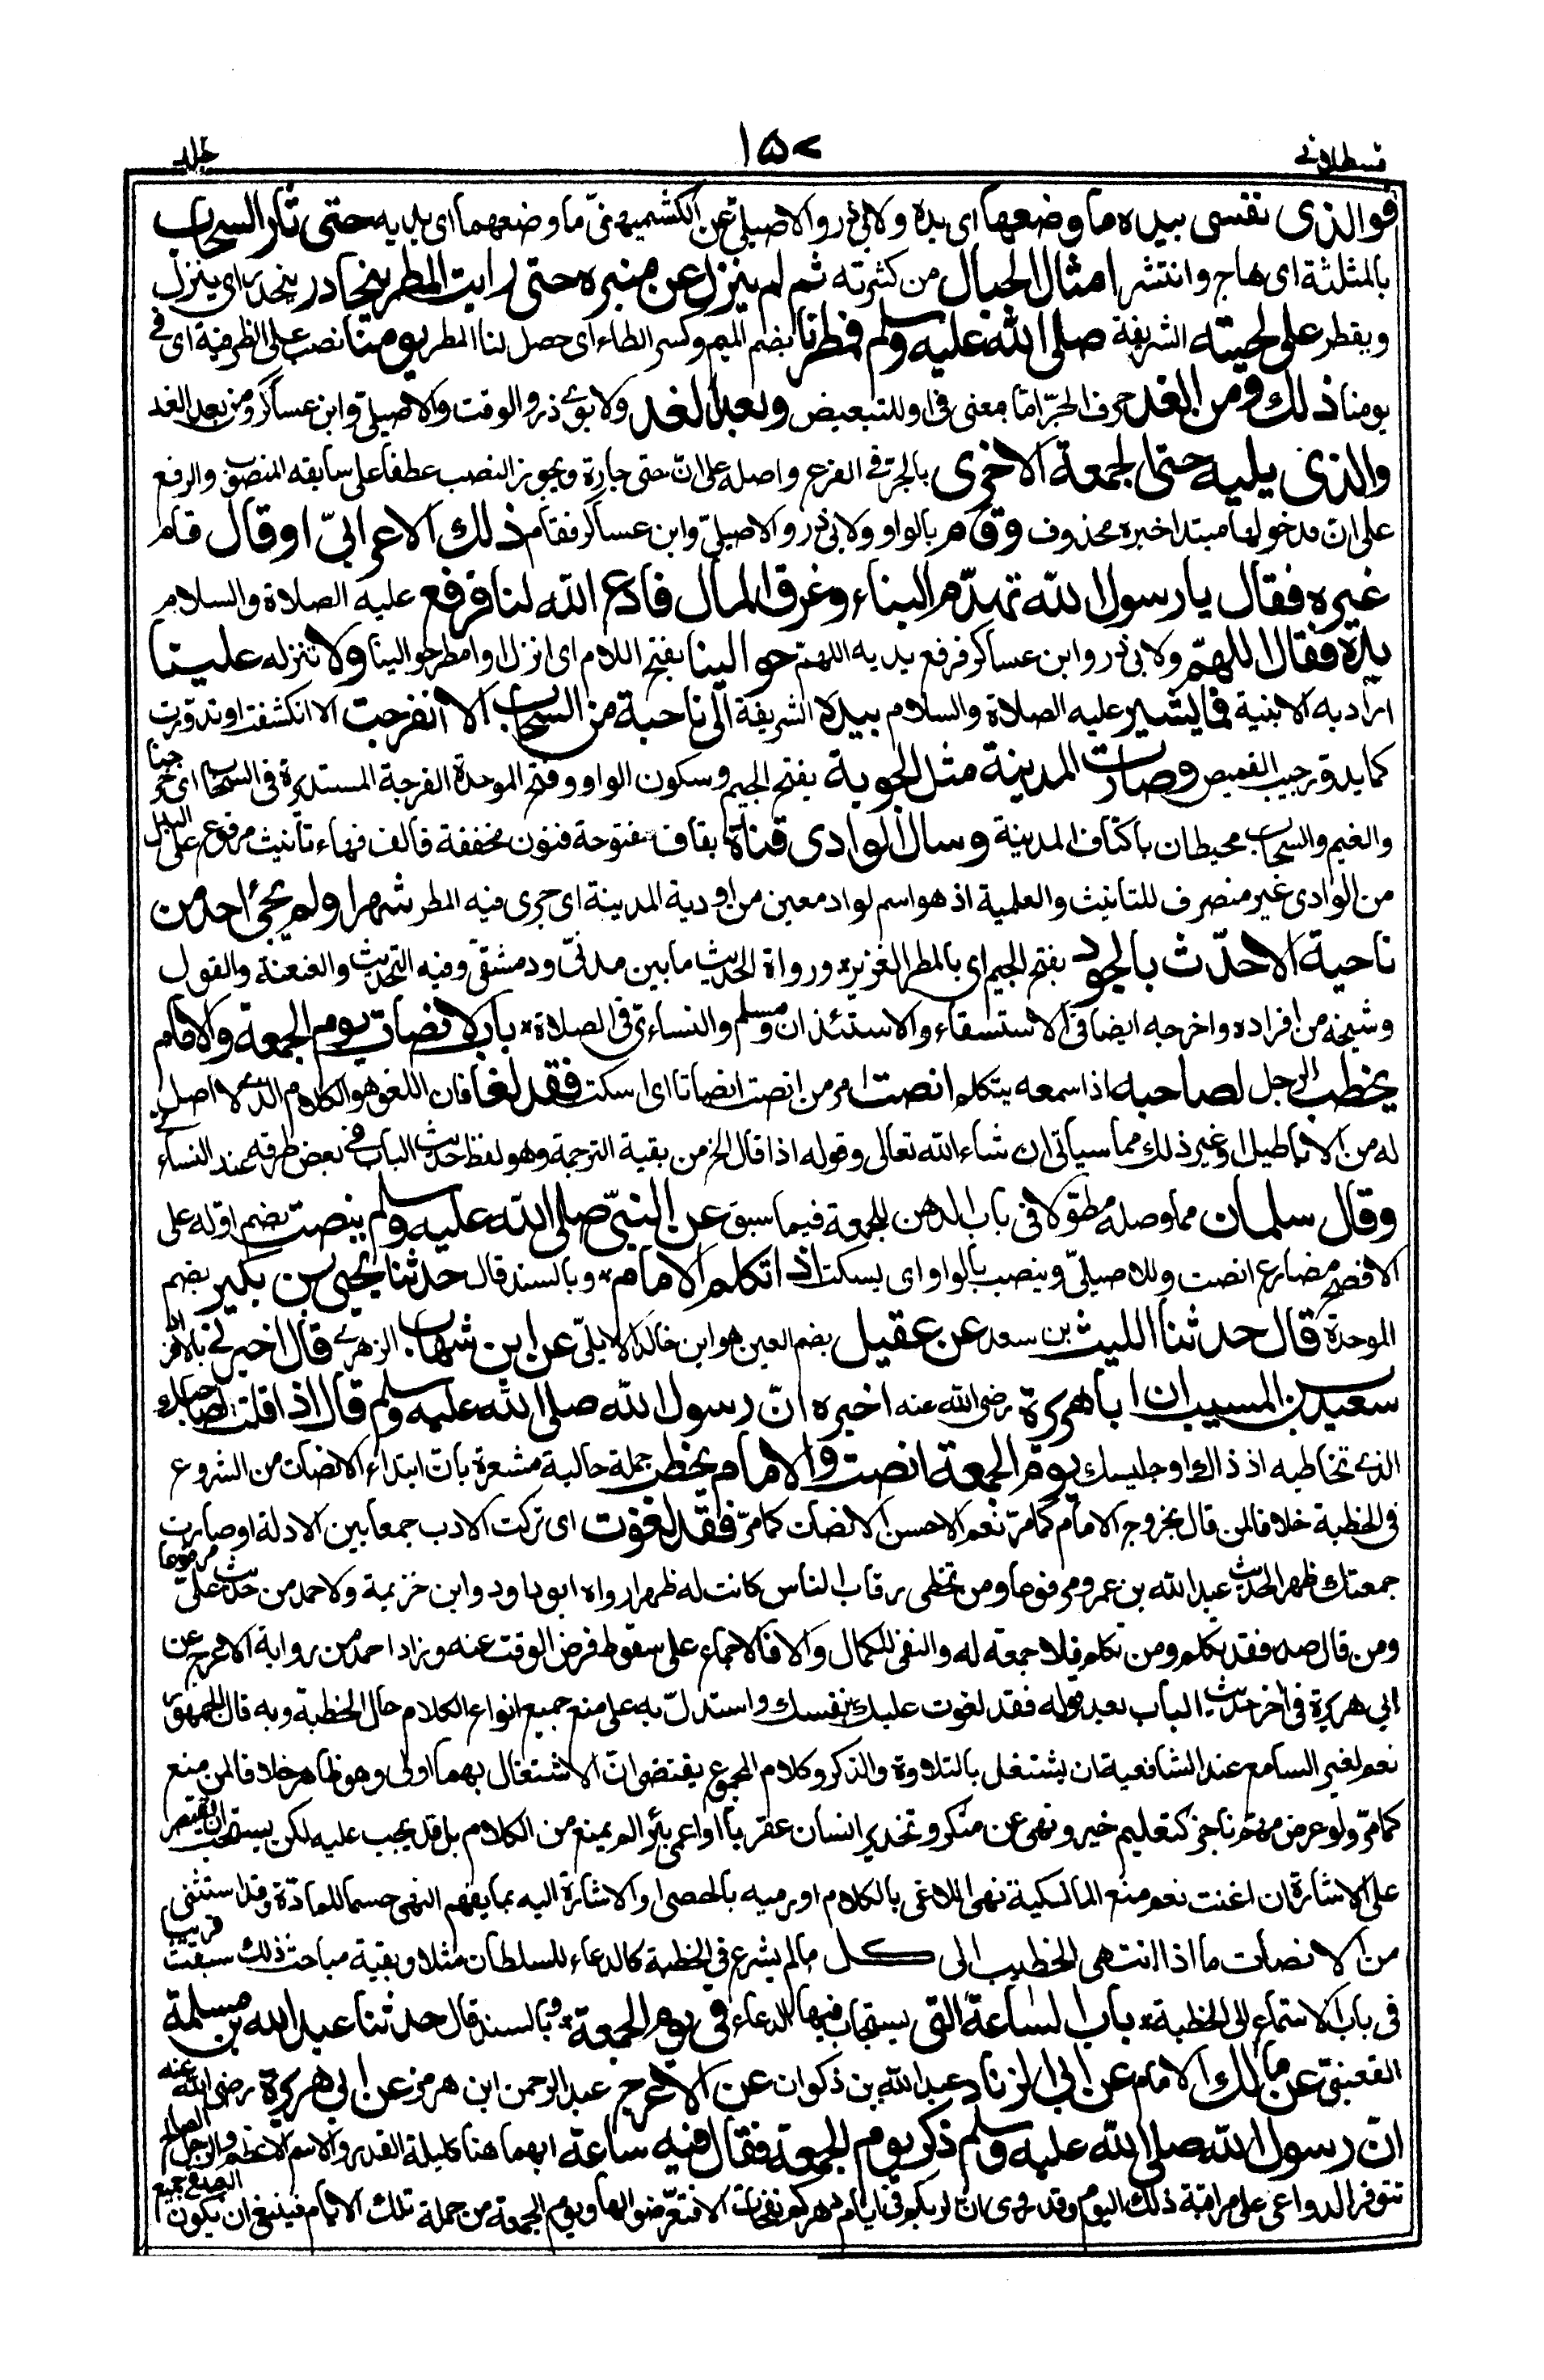 قسطلانے
۱۵۷
جلد
فوالذی نفسی بیده ما وضعها ای یده ولابی ذر والاصیلیّ عن الکشمیهنیّ ما وضعهما ای یدیه حتی ثار السحاب
بالمثلثة ای هاج وانتشر امثال الجبال من کثرته ثم لم ینزل عن منبره حتی رایت المطر یتحادر یتحدر ای ینزل
ویقطر علی لحیته الشریفة صلی الله علیه وسلم فمطرنا بضم المیم وکسر الطاء ای حصل لنا المطر یومنا نصب علی الظرفیة ای فی
یومنا ذلك ومن الغد حرف الجرّ امّا بمعنی فی او للتبعیض وبعد الغد ولابوے ذر والوقت والاصیلیّ وابن عساکر ومن بعد الغد
والذی یلیه حتی الجمعة الاخری بالجرّ فی الفرع واصله علی انّ حتی جارة ویجوز النصب عطفا علی سابقه المنصوب والرفع
علی ان مدخولها مبتدا خبره محذوف وقام بالواو ولابی ذر والاصیلیّ وابن عساکر فقام ذلك الاعرابیّ او قال قام
غیره فقال یا رسول الله تهدّم البناء وغرق المال فادع الله لنا فرفع علیه الصلاة والسلام
یده فقال اللهمّ ولابی ذر وابن عساکر فرفع یدیه اللهمّ حوالینا بفتح اللام ای انزل او امطر حوالینا ولا تنزله علینا
اراد به الابنیة فما یشیر علیه الصلاة والسلام بیده الشریفة الی ناحیة من السحاب الا انفرجت الا انکشفت او تدوّرت
کما یدوّر جیب القمیص وصارت المدینة مثل الجوبة بفتح الجیم وسکون الواو وفتح الموحدة الفرجة المستدیرة فی السحاب ای خرجنا
والغیم والسحاب محیطان باکناف المدینة وسال الوادی قناة بقاف مفتوحة فنون مخففة فالف فهاء تانیث مرفوع علی البدل
من الوادی غیر منصرف للتانیث والعلمیة اذ هو اسم لواد معین من اودیة المدینة ای جری فیه المطر شهرا ولم یجئ احد من
ناحیة الا حدّث بالجود بفتح الجیم ای بالمطر الغزیر ورواة الحدیث ما بین مدنیّ ودمشقیّ وفیه التحدیث والعنعنة والقول
وشیخه من افراده واخرجه ایضا فی الاستسقاء والاستئذان ومسلم والنساءیّ فی الصلاة باب الانصات یوم الجمعة والامام
یخطب واذا قال الرجل لصاحبه اذا سمعه یتکلم انصت امر من انصت انصاتا ای اسکت فقد لغا فان اللغو هو الکلام الذے لا اصل
له من الاباطیل او غیر ذلك مما سیاتی ان شاء الله تعالی وقوله اذا قال الخ من بقیة الترجمة وهو لفظ حدیث الباب فی بعض طرقه عند النساءے
وقال سلمان مما وصله مطوّلا فی باب الدهن للجمعة فیما سبق عن النبیّ صلی الله علیه وسلم ینصت بضم اوّله علی
الافصح مضارع انصت وللاصیلیّ وینصت بالواو ای یسکت اذا تکلم الامام وبالسند قال حدثنا یحیی بن بکیر بضم
الموحدة قال حدثنا اللیث بن سعد عن عقیل بضم العین هو ابن خالد الایلیّ عن ابن شهاب الزهرے قال اخبرنی بالافراد
سعید بن المسیب ان ابا هریرة رضی الله عنه اخبره انّ رسول الله صلی الله علیه وسلم قال اذا قلت لصاحبك
الذے تخاطبه اذ ذاك او جلیسك یوم الجمعة انصت والامام یخطب جملة حالیة مشعرة بانّ ابتداء الانصات من الشروع
فی الخطبة خلافا لمن قال بخروج الامام کما مرّ نعم الاحسن الانصات کما مرّ فقد لغوت ای ترکت الادب جمعا بین الادلة او صارت
جمعتك ظهرا لحدیث عبد الله بن عمرو مرفوعا ومن تخطی رقاب الناس کانت له ظهرا رواه ابو داود وابن خزیمة ولاحمد من حدیث علیّ مرفوعا
ومن قال صه فقد تکلم ومن تکلم فلا جمعة له والنفی للکمال والا فالاجماع علی سقوط فرض الوقت عنه وزاد احمد من روایة الاعرج عن
ابی هریرة فی آخر حدیث الباب بعد قوله فقد لغوت علیك بنفسك واستدلّ به علی منع جمیع انواع الکلام حال الخطبة وبه قال الجمهور
نعم لغیر السامع عند الشافعیة ان یشتغل بالتلاوة والذکر وکلام المجموع یقتضی انّ الاشتغال بهما اولی وهو ظاهر خلافا لمن منع
کما مرّ ولو عرض مهمّ ناجز کتعلیم خیر ونهی عن منکر وتحذیر انسان عقربا او اعمی بئرا لم یمنع من الکلام بل قد یجب علیه لکن یستحب ان یقتصر
علی الاشارة ان اغنت نعم منع المالکیة نهی اللاغی بالکلام او رمیه بالحصی او الاشارة الیه بما یفهم النهی حسما للمادّة وقد استثنی
من الانصات ما اذا انتهی الخطیب الی کل ما لم یشرع فی الخطبة کالدعاء للسلطان مثلا وبقیة مباحث ذلك سبقت قریبا
فی باب الاستماع الی الخطبة باب الساعة التی یستجاب فیها الدعاء فی یوم الجمعة وبالسند قال حدثنا عبد الله بن مسلمة
القعنبیّ عن مالك الامام عن ابی الزناد عبد الله بن ذکوان عن الاعرج عبد الرحمن ابن هرمز عن ابی هریرة رضی الله عنه
انّ رسول الله صلی الله علیه وسلم ذکر یوم الجمعة فقال فیه ساعة ابهمها هنا کلیلة القدر والاسم الاعظم والرجل الصالح
تتوفر الدواعی علی مراقبة ذلك الیوم وقد روی ان لربکم فی ایام دهرکم نفحات الا فتعرّضوا لها ویوم الجمعة من جملة تلك الایام فینبغی ان یکون العبد فی جمیع